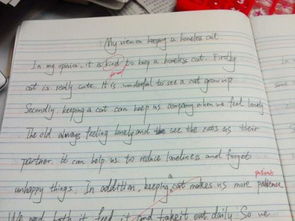 My view on keeping a homeless cat
In my opinion, it is kind to keep a homeless cat. Firstly
cat is really cute. It is wonderful to see a cat grow up
Secondly, keeping a cat can keep us company when we feel lonely
The old always feeling lonely and see the cats as their
partner. it can help us to reduce loneliness and forget
unhappy things. In addition, keeping a cat makes us more patience
patient
We need both it feed it and take it out daily So we